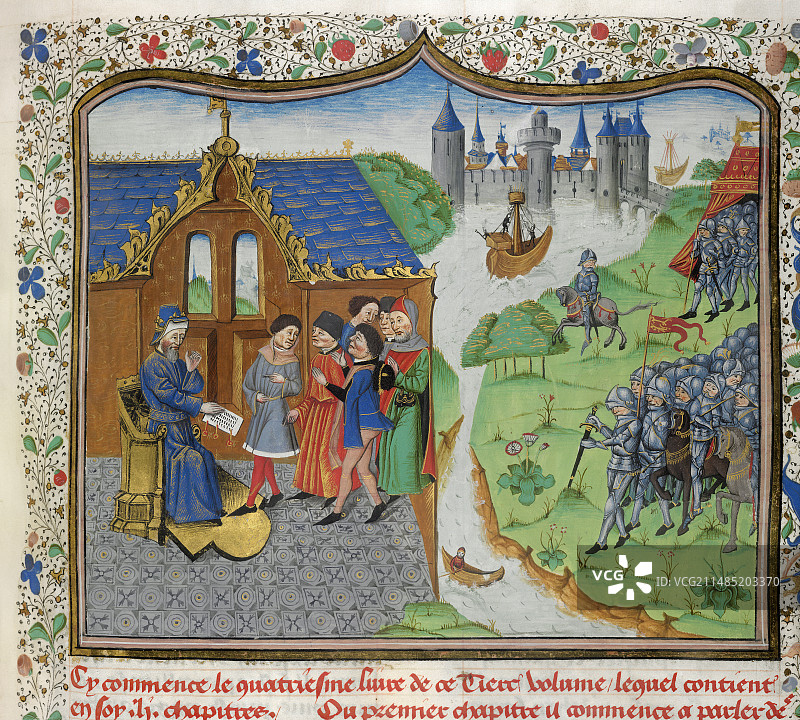 VCG
ID:VCG211485203370
Cy commence le quatriesme liure de ce Tiers volume / lequel contient
en soy .lj. chapitres. / Ou premier chapitre il commence a parler de